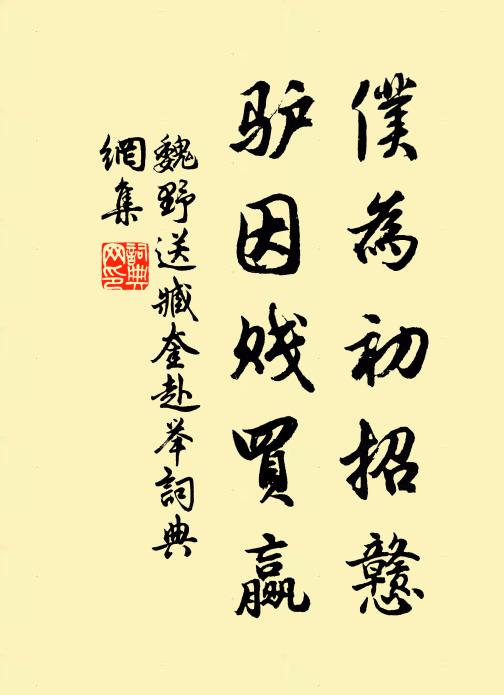 僕為初招戇
驴因贱買羸
魏野送臧奎赴举詞典
網集
詞典网印